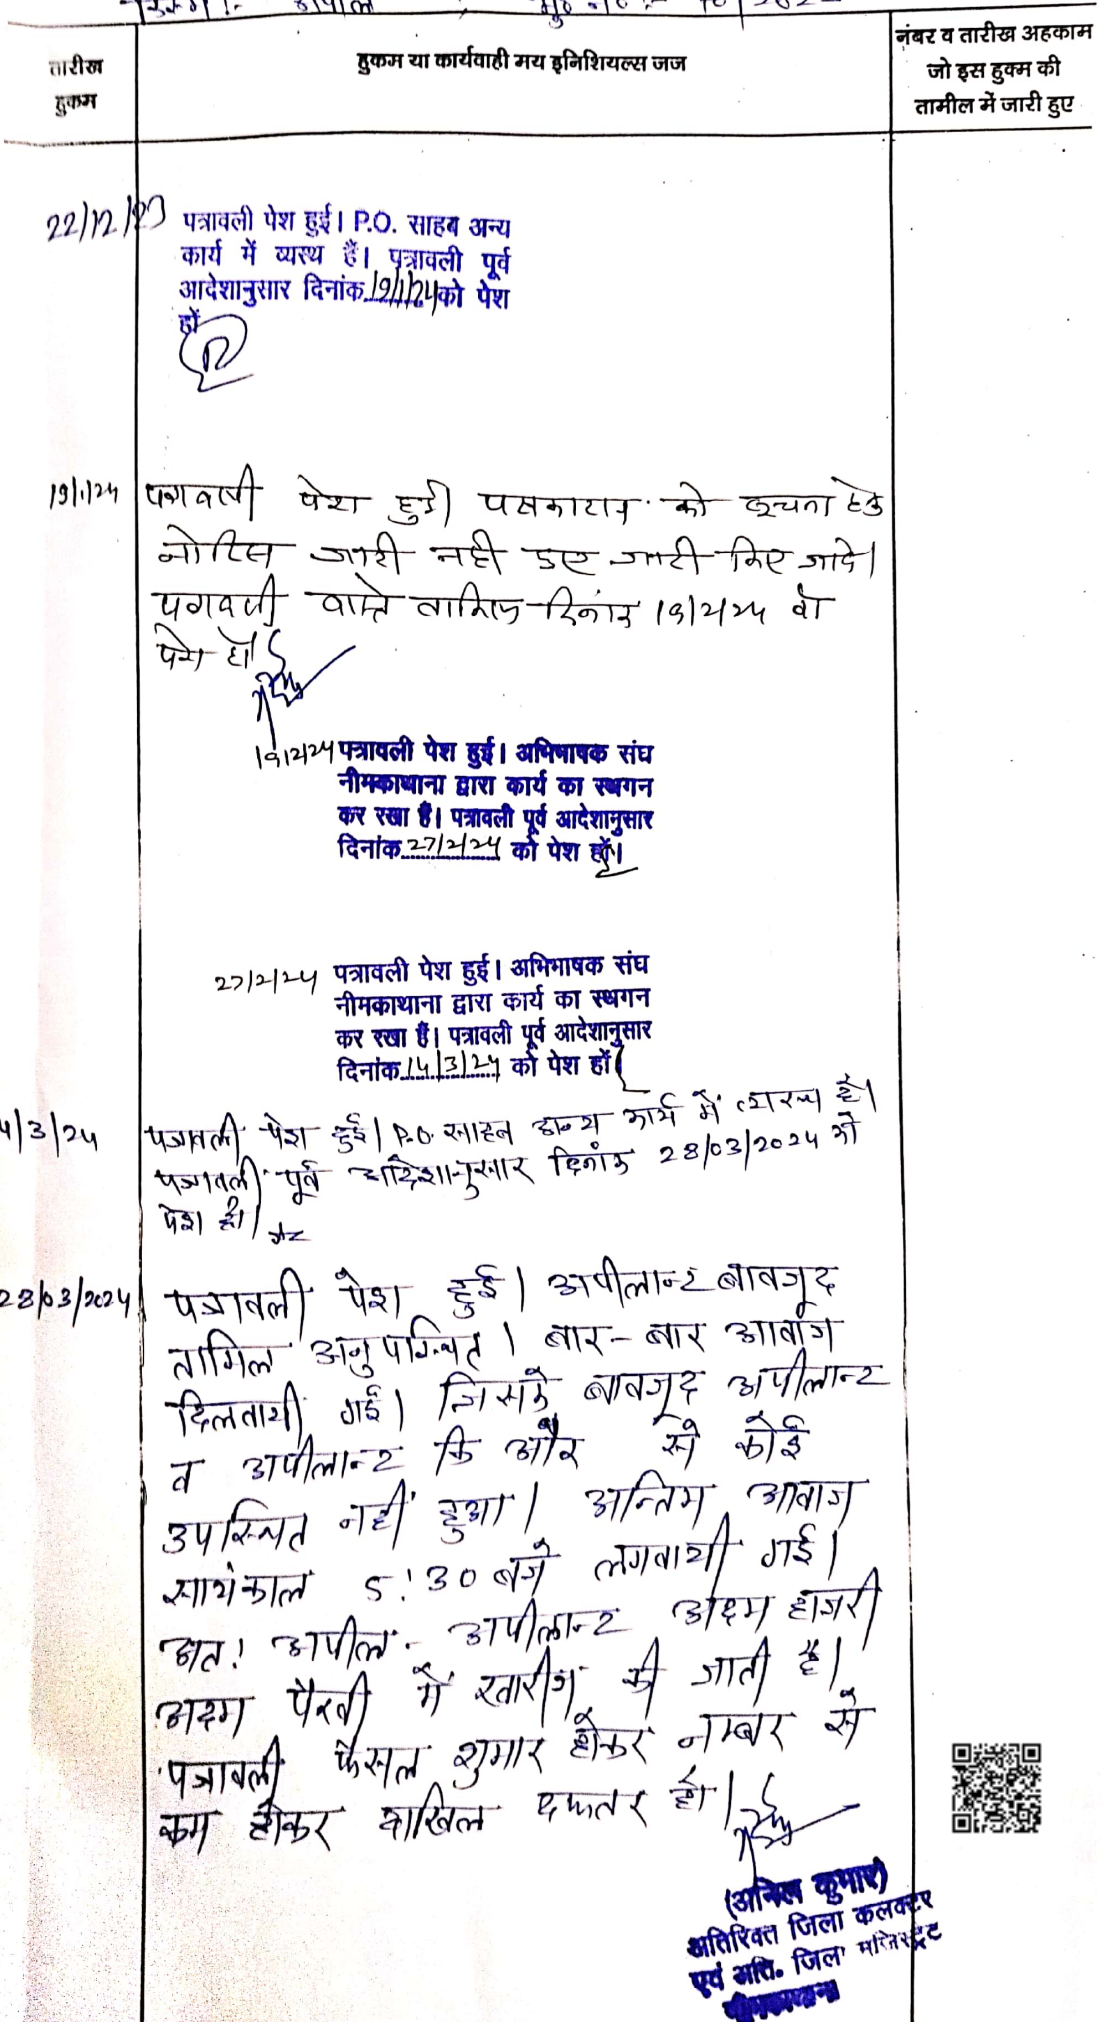 तारीख
हुकम
हुकम या कार्यवाही मय इनिशियल्स जज
नंबर व तारीख अहकाम
जो इस हुक्म की
तामील में जारी हुए
22/12/23 पत्रावली पेश हुई। P.O. साहब अन्य
कार्य में व्यस्थ हैं। पत्रावली पूर्व
आदेशानुसार दिनांक 19/1/24 को पेश
हों
19/1/24 पत्रावली पेश हुई पक्षकारान को सूचना हेतु
नोटिस जारी नही हुए जारी किए जावे।
पत्रावली वास्ते तामिल दिनांक 19/2/24 को
पेश हो।
19/2/24 पत्रावली पेश हुई। अभिभाषक संघ
नीमकाथाना द्वारा कार्य का स्थगन
कर रखा हैं। पत्रावली पूर्व आदेशानुसार
दिनांक 27/2/24 को पेश हों।
27/2/24 पत्रावली पेश हुई। अभिभाषक संघ
नीमकाथाना द्वारा कार्य का स्थगन
कर रखा हैं। पत्रावली पूर्व आदेशानुसार
दिनांक 14/3/24 को पेश हों
4/3/24 पत्रावली पेश हुई। P.O. साहब अन्य कार्य में व्यस्थ है।
पत्रावली पूर्व आदेशानुसार दिनांक 28/03/2024 को
पेश हो।
28/03/2024 पत्रावली पेश हुई। अपीलान्ट बावजूद
तामिल अनुपस्थित। बार-बार आवाज
दिलवायी गई। जिसके बावजूद अपीलान्ट
व अपीलान्ट कि और से कोई
उपस्थित नहीं हुआ। अन्तिम आवाज
सायंकाल 5:30 बजे लगवायी गई।
अत: अपील अपीलान्ट अदम हाजरी
अदम पैरवी में खारीज की जाती है।
पत्रावली फैसल शुमार होकर नम्बर से
कम होकर दाखिल दफ्तर हो।
(अनिल कुमार)
अतिरिक्त जिला कलक्टर
एवं अति. जिला मजिस्ट्रेट
नीमकाथाना